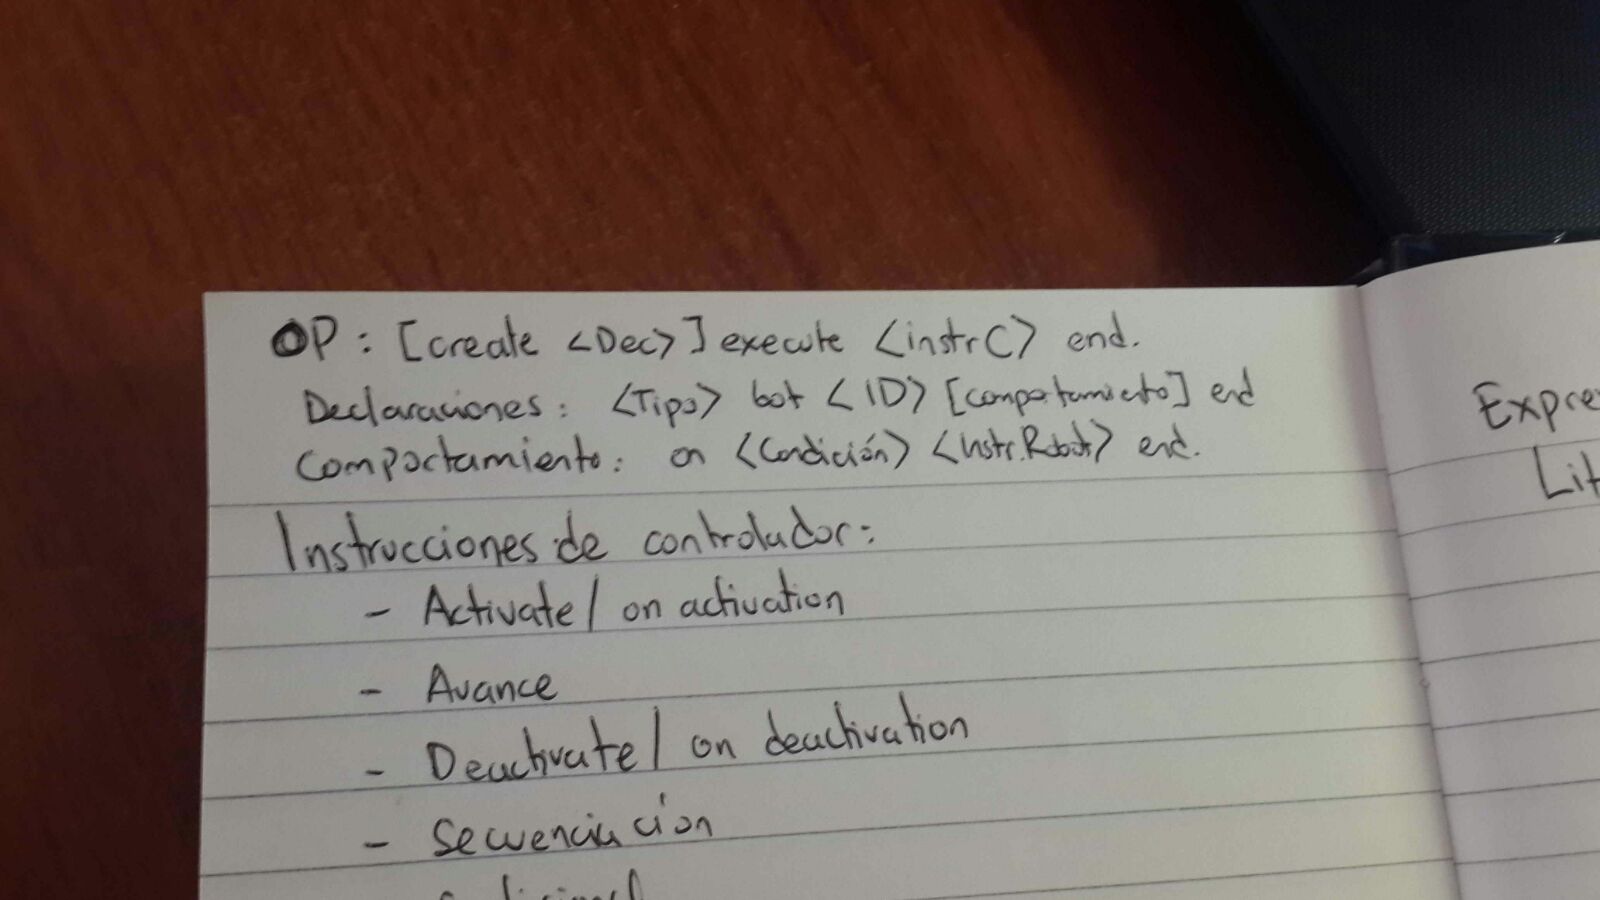 OP: [create <Dec>] execute <instrC> end.
Declaraciones: <Tipo> bot <ID> [comportamiento] end
Comportamiento: on <Condición> <Instr.Robot> end.
Instrucciones de controlador:
- Activate/ on activation
- Avance
- Deactivate/ on deactivation
- Secuenciación